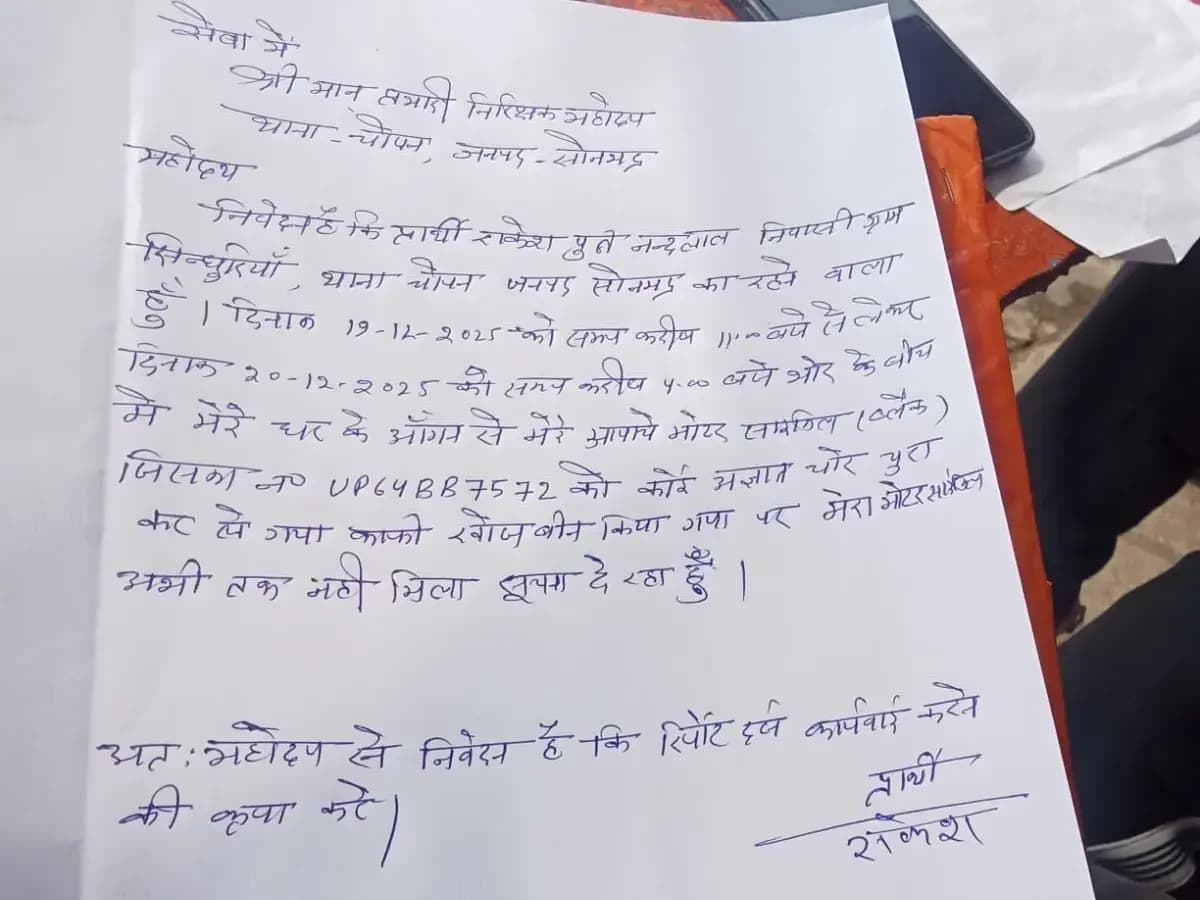 सेवा में
श्री मान् प्रभारी निरिक्षक महोदय
थाना - चोपन, जनपद - सोनभद्र
महोदय
निवेदन है कि प्रार्थी राकेश पुत्र नन्दलाल निवासी ग्राम
सिन्धुरियाँ, थाना चोपन जनपद सोनभद्र का रहने वाला
हूँ। दिनाक 19-12-2025 को समय करीब 11:00 बजे से लेकर
दिनाक 20-12-2025 को समय करीब 4:00 बजे भोर के बीच
मे मेरे घर के आँगन से मेरे आपाचे मोटर साइकिल (ब्लैक)
जिसका न० UP64BB7572 को कोई अज्ञात चोर चुरा
कर ले गया काफी खोजबीन किया गया पर मेरा मोटरसाइकिल
अभी तक नही मिला सूचना दे रहा हूँ।
अत: महोदय से निवेदन है कि रिपोर्ट दर्ज कार्यवाई करने
की कृपा करे।
प्रार्थी
राकेश